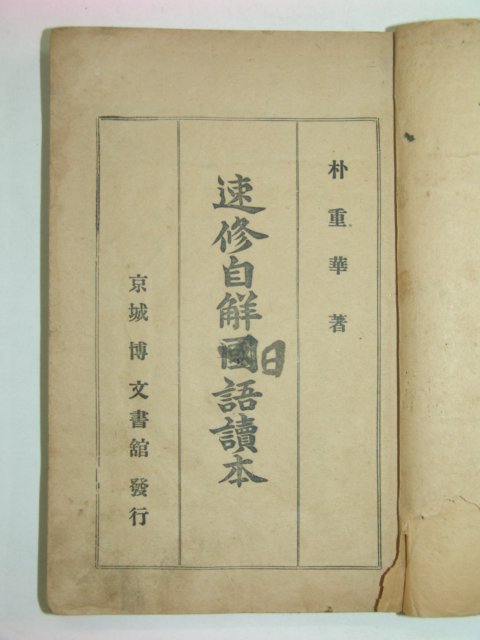 朴重華著
速修自解國語讀本
日
京城博文書館發行